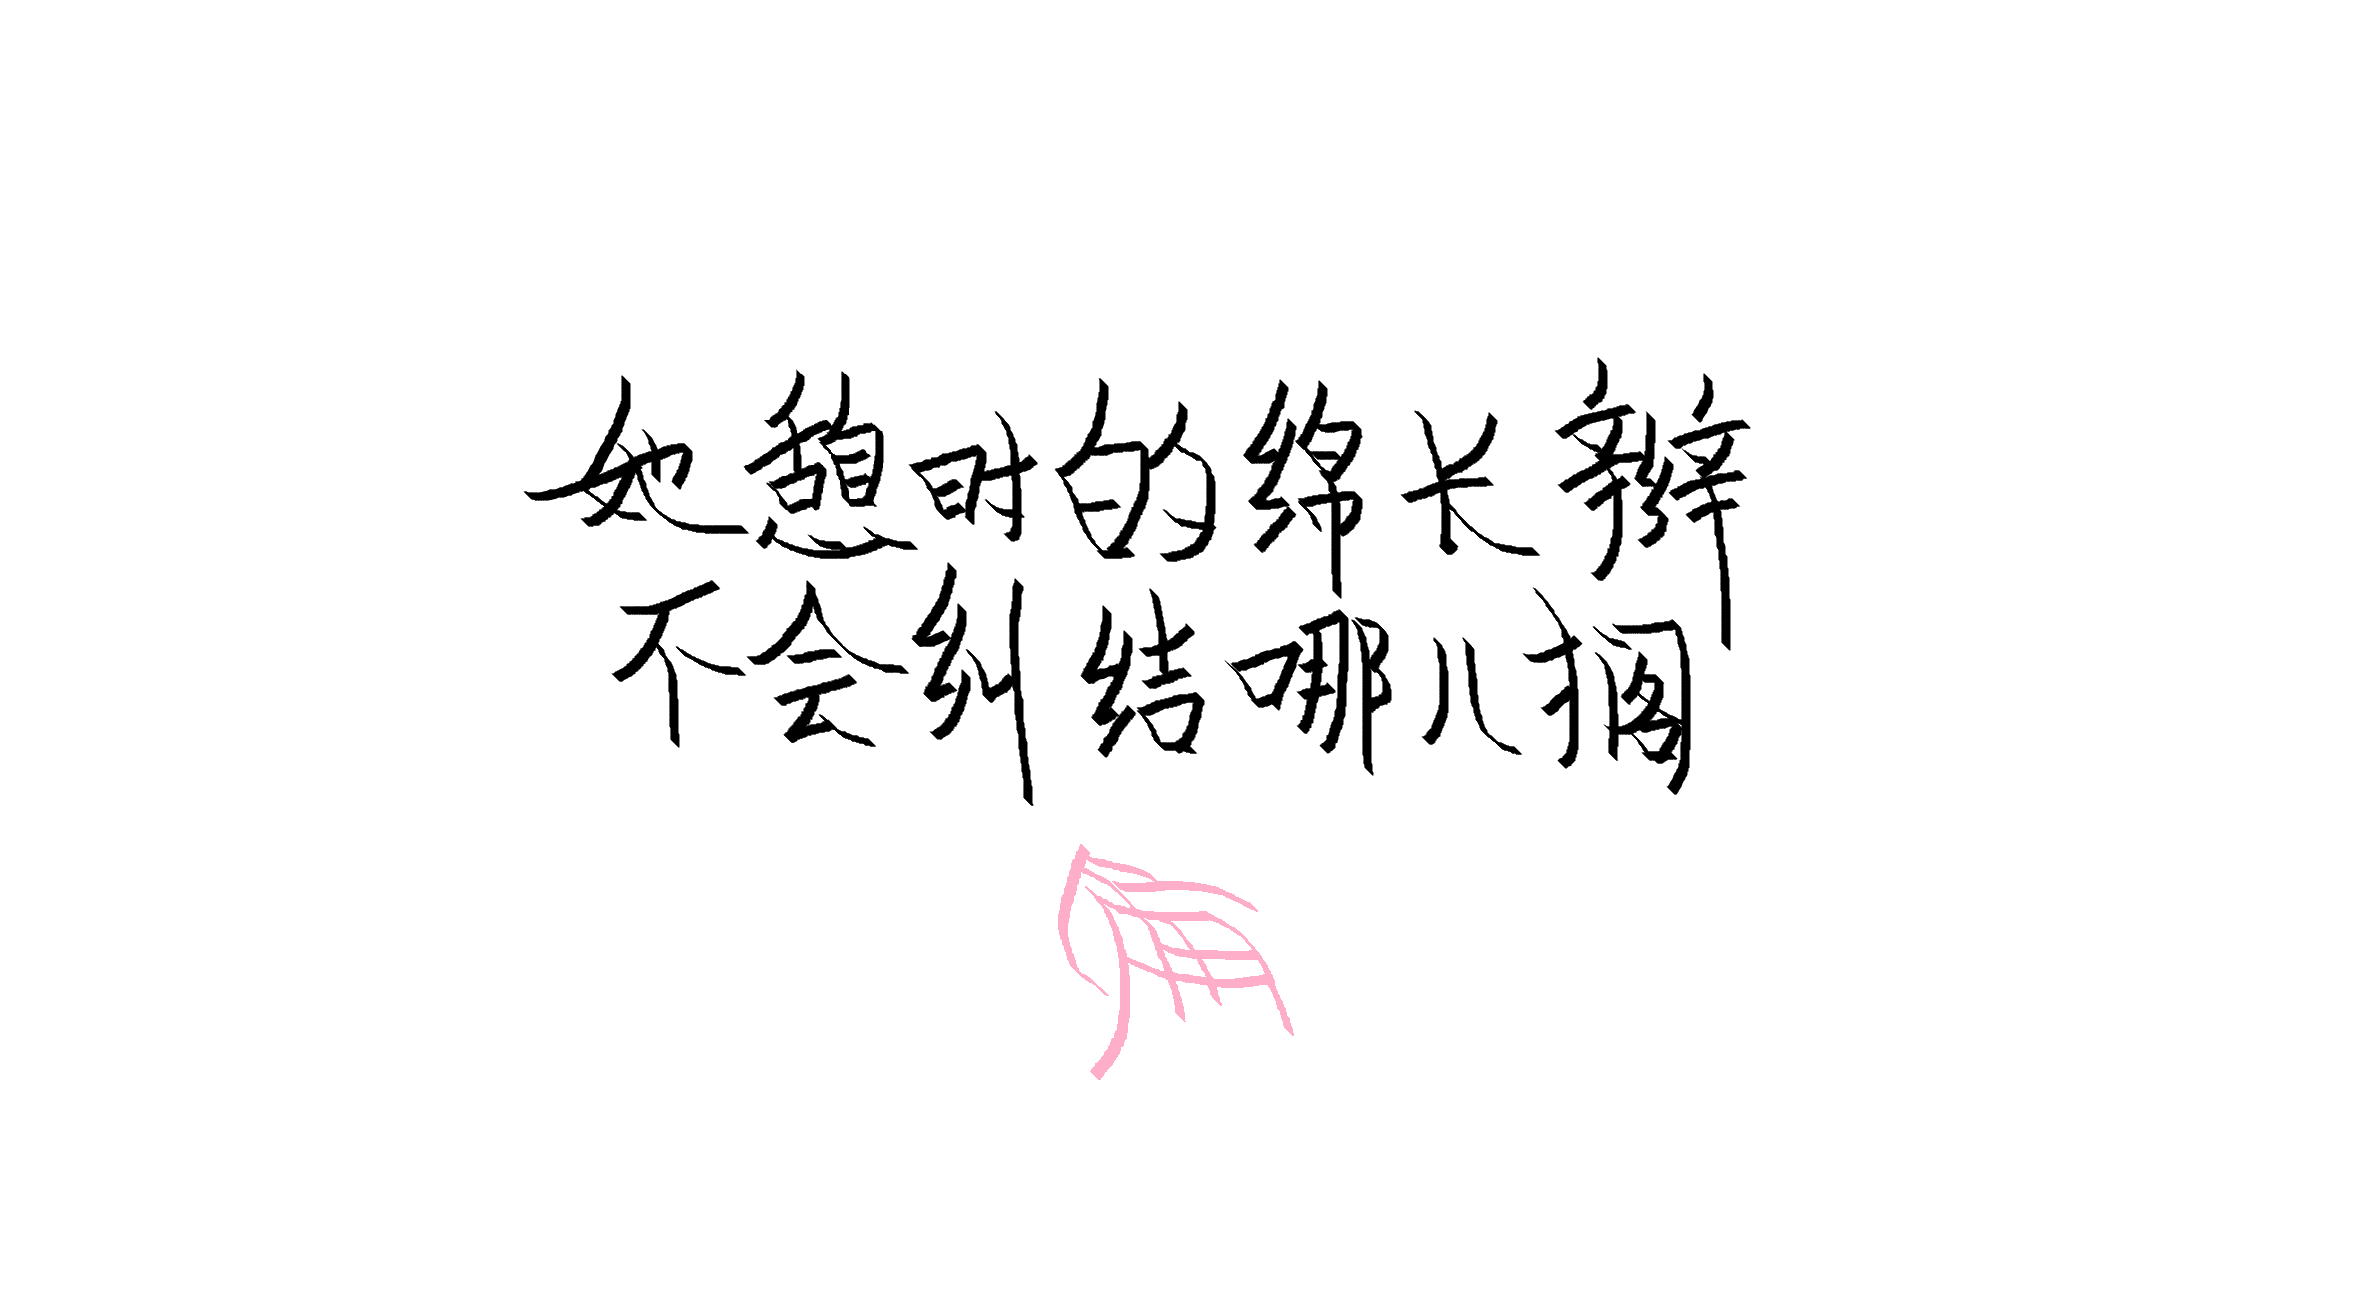 她憩时的绵长辫
不会纠结哪儿搁